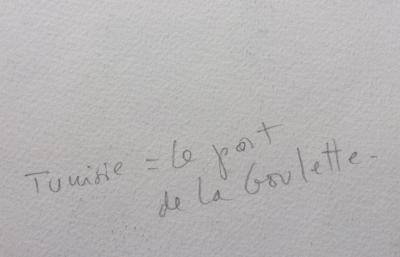 Tunisie = Le port
de La Goulette.